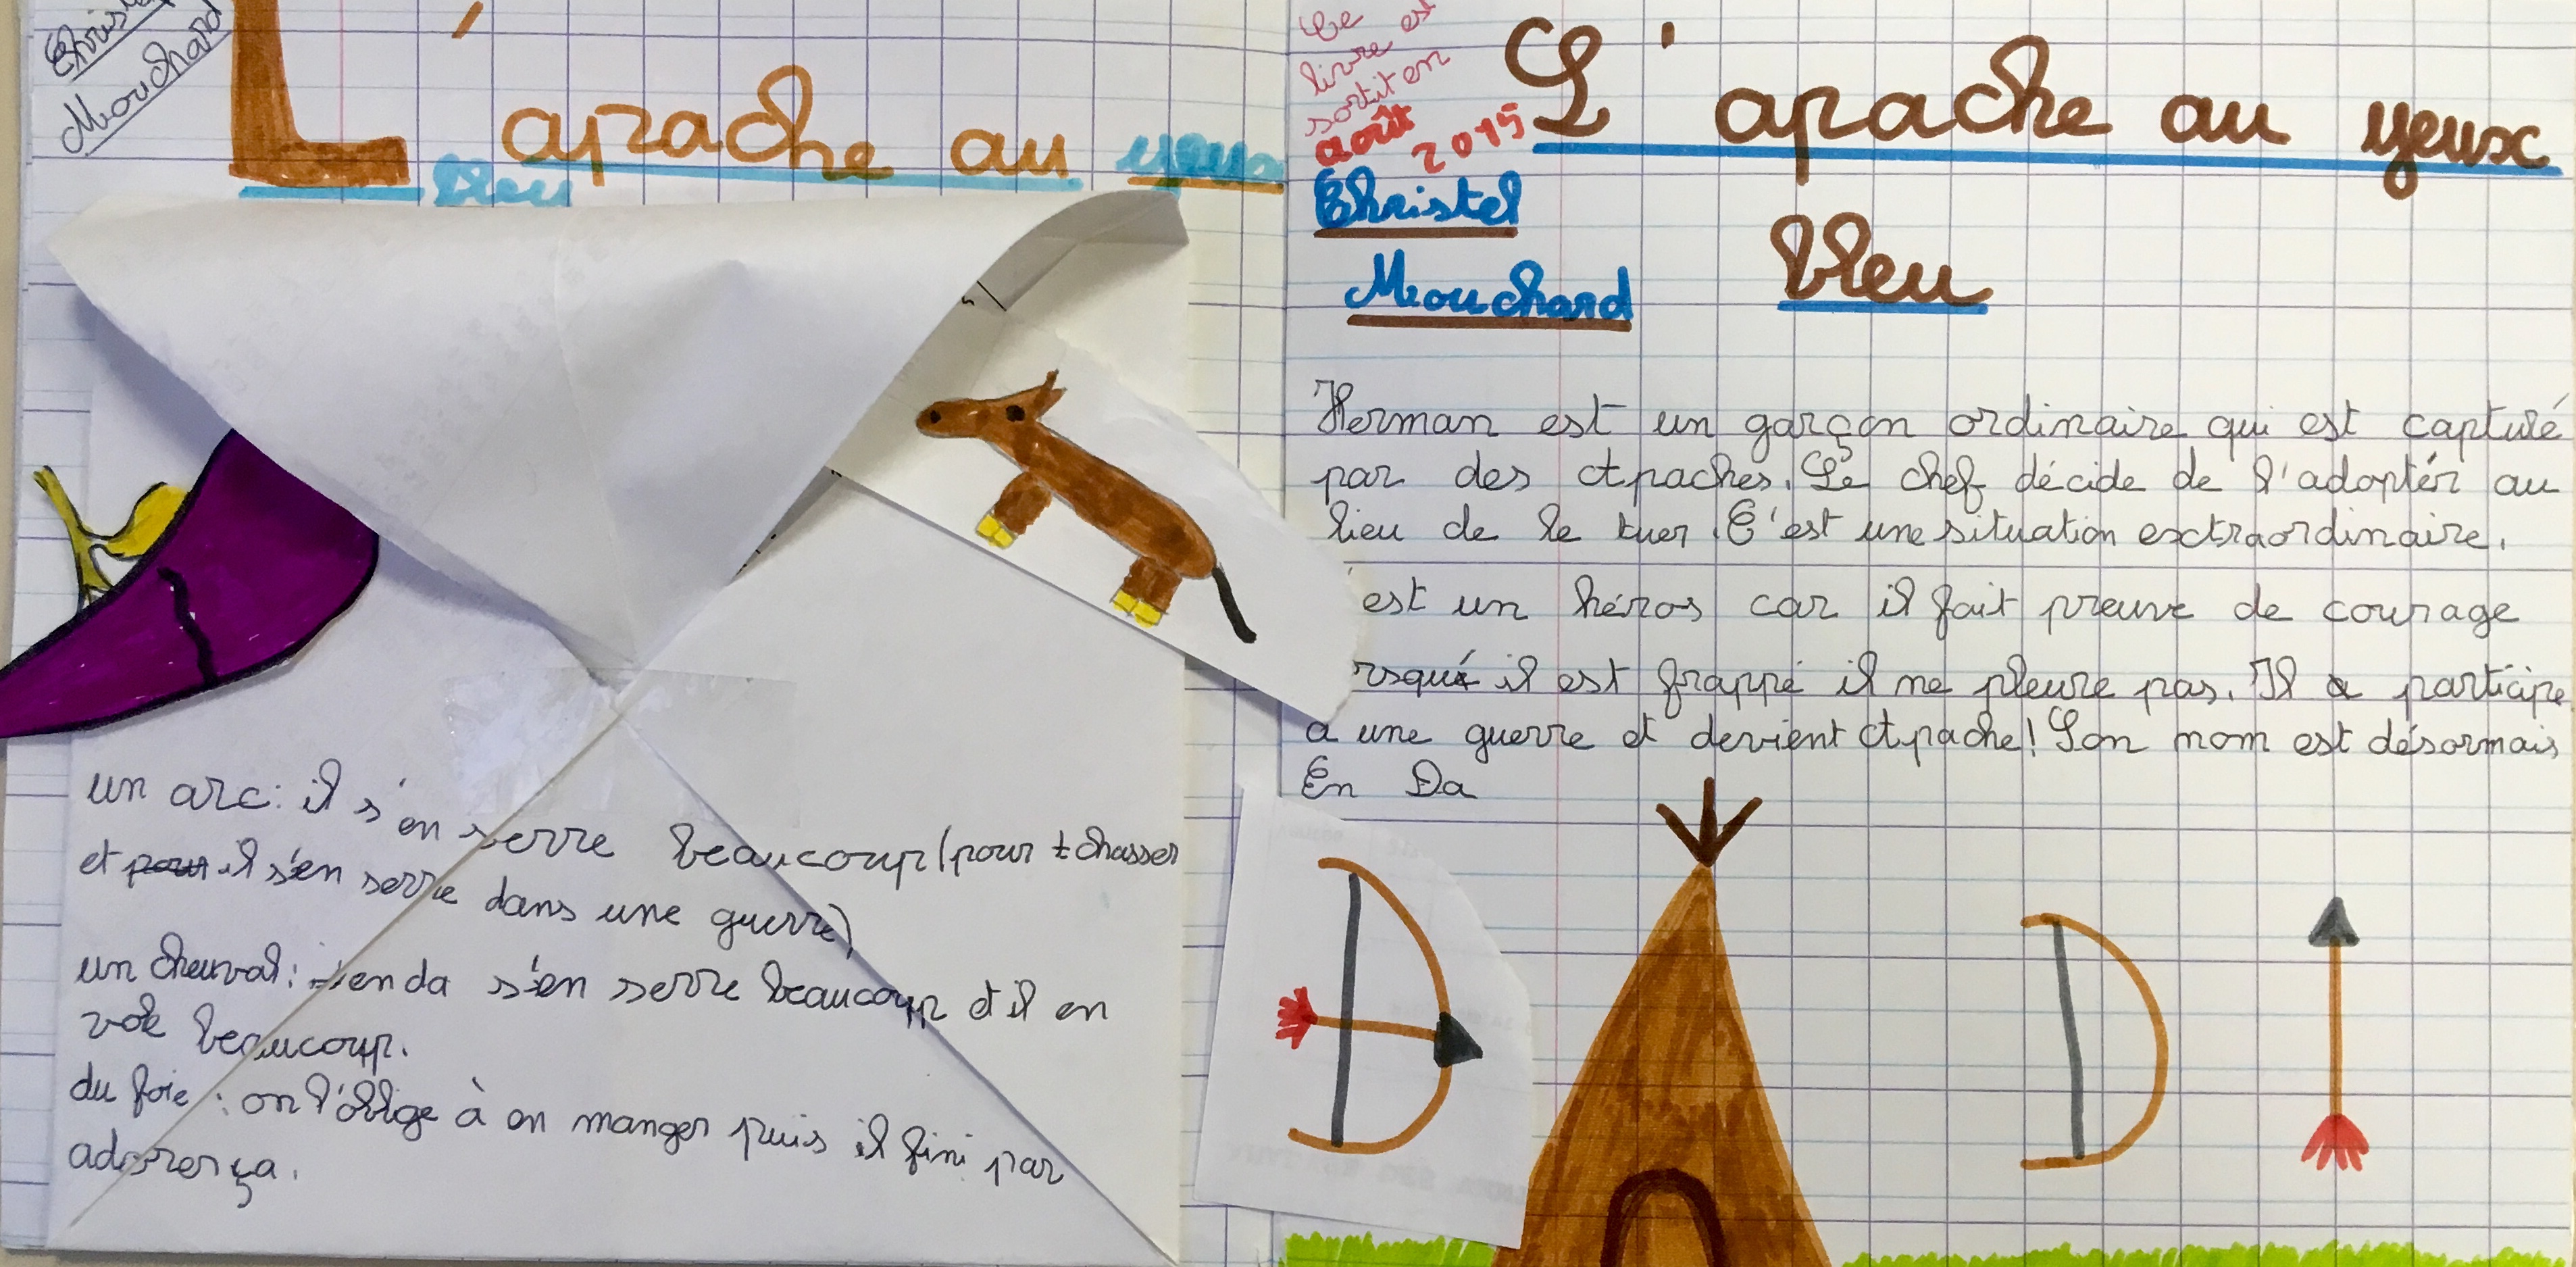 Mouchard
L'apache au yeux
bleu
un arc : il s'en serre beaucoup (pour chasser
et pour il s'en serre dans une guerre)
un cheval : enda s'en serre beaucoup et il en
vole beaucoup.
du foie : on l'oblige à en manger puis il fini par
adorer ça.
Ce
livre est
sortit en
août
2015
Christel
Mouchard
L'apache au yeux
bleu
Herman est un garçon ordinaire qui est capturé
par des Apaches. Le chef décide de l'adoptér au
lieu de le tuer. C'est une situation exctraordinaire.
est un héros car il fait preuve de courage
rsqué il est frappé il ne pleure pas. Il a participe
a une guerre et devient Apache! Son nom est désormais
En Da